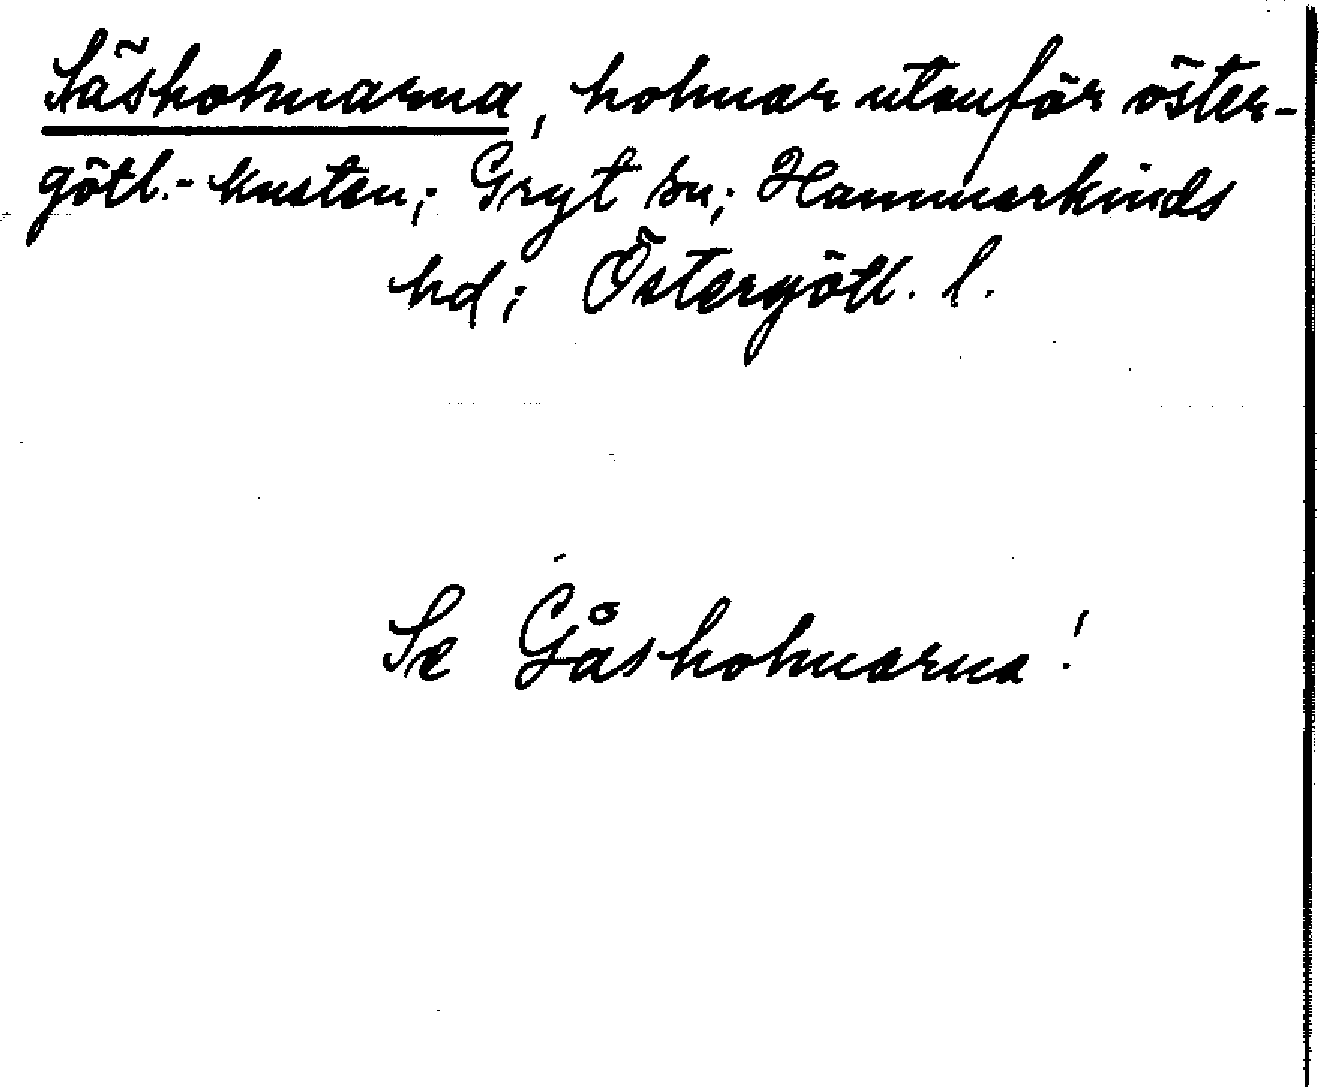 Säsholmarna, holmar utanför öster-
götl.-kusten; Gryt sn; Hammarkinds
hd; Östergötl. l.
Se Gåsholmarna!